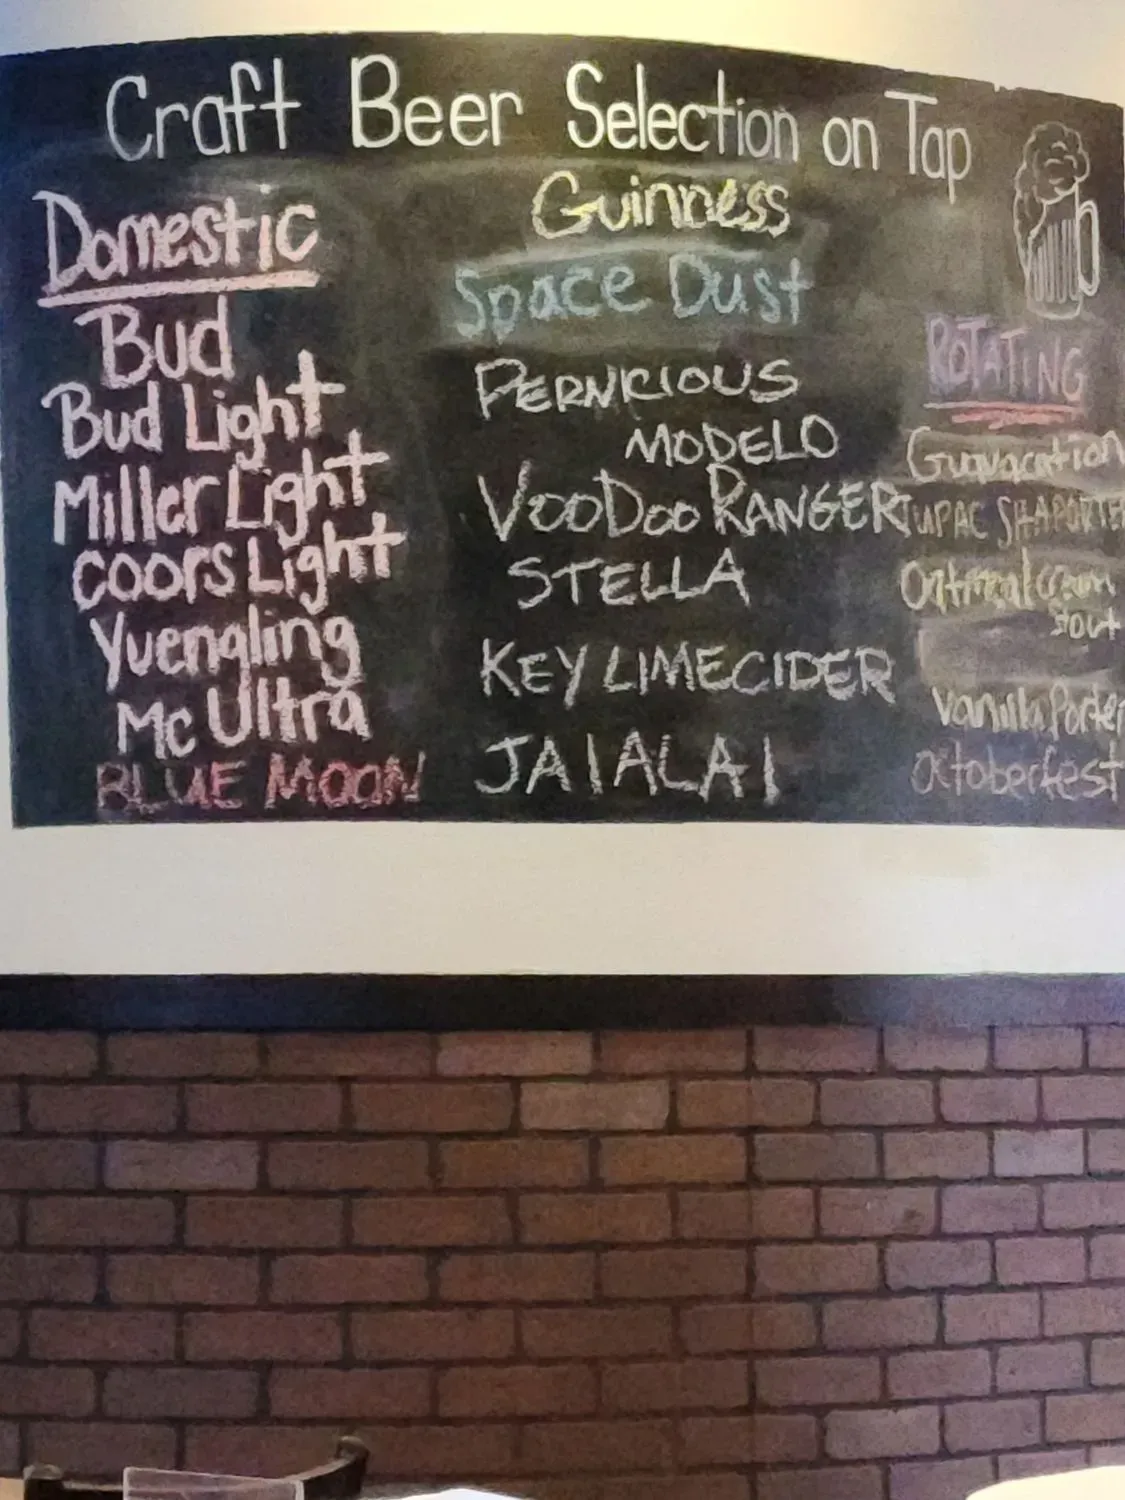 Craft Beer Selection on Tap
Domestic
Bud
Bud Light
Miller Light
Coors Light
Yuengling
Mc Ultra
BLUE MOON
Guinness
Space Dust
PERNICIOUS
MODELO
VOODOO RANGER
STELLA
KEY LIME CIDER
JAIALAI
ROTATING
Guavacation
TUPAC SHAPORTER
Oatmeal Cream
Sout
Vanilla Porter
Octoberfest